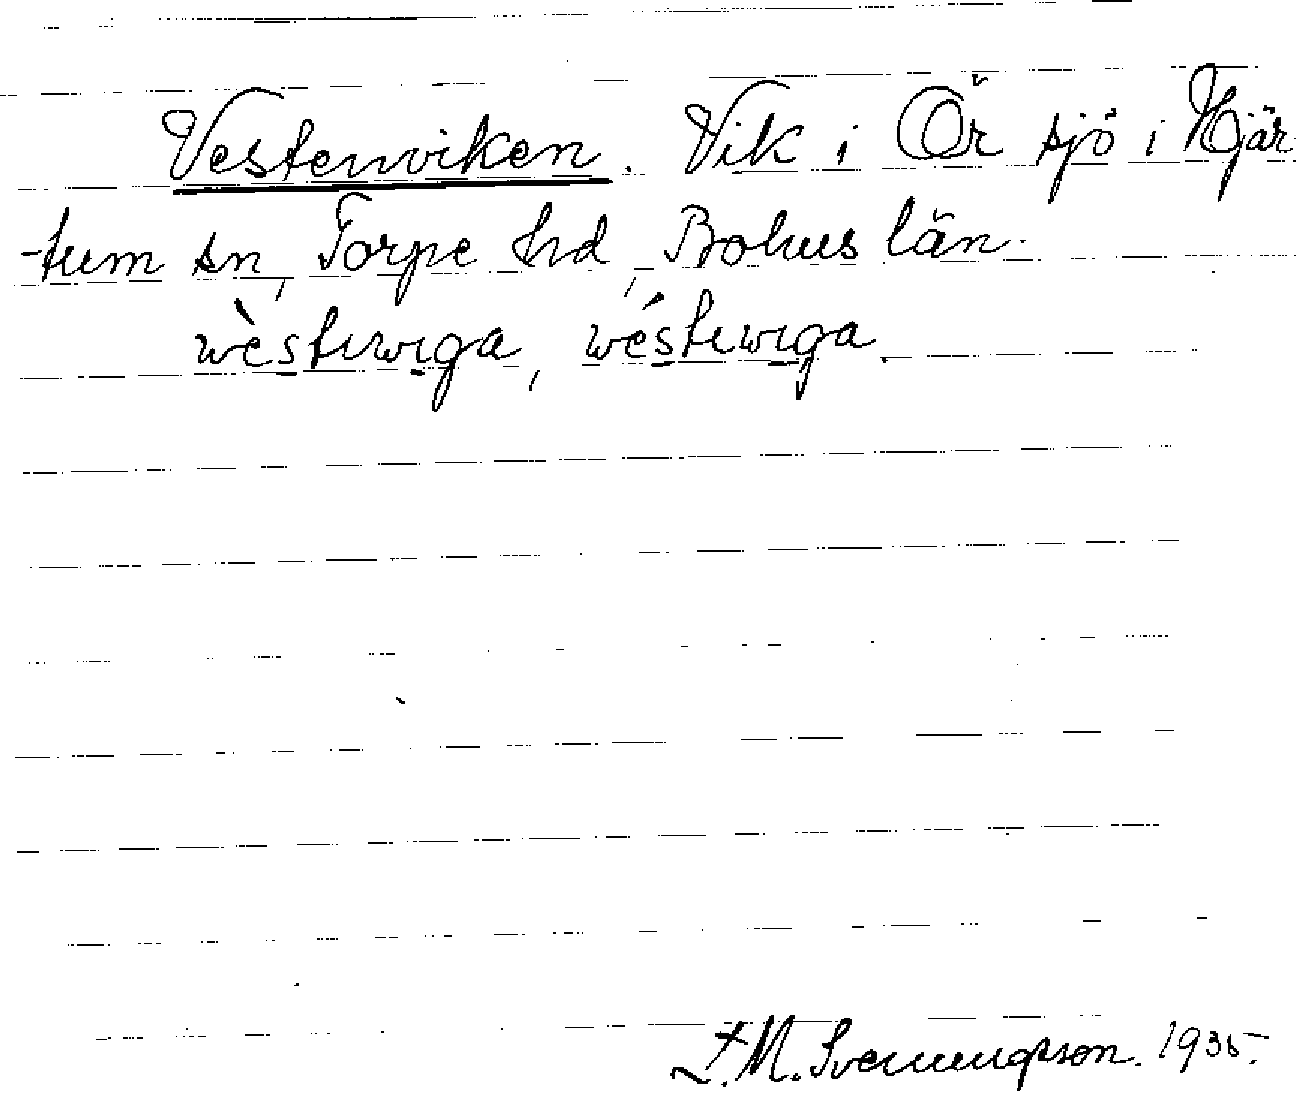 Vestenviken. Vik i Ör sjö i Hjär-
tum sn, Torpe hd, Bohus län.
wèstɩwɩga, wéstɩwɩga.
F. M. Svenungsson. 1935.